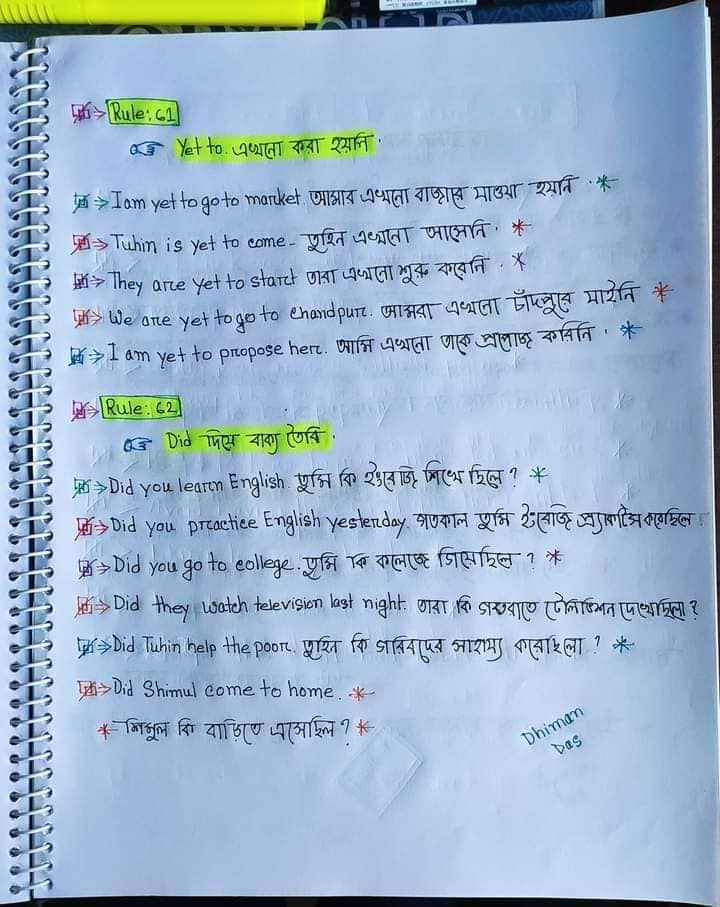 Rule: 61
Yet to. এখনো করা হয়নি.
I am yet to go to market আমার এখনো বাজারে যাওয়া হয়নি.
Tuhin is yet to come - তুহিন এখনো আসেনি.
They are yet to start তারা এখনো শুরু করেনি.
We are yet to go to chandpur. আমরা এখনো চাঁদপুরে যাইনি
I am yet to propose her. আমি এখনো তাকে প্রপোজ করিনি.
Rule: 62
Did দিয়ে বাক্য তৈরি.
Did you learn English. তুমি কি ইংরেজি শিখেছিলে?
Did you practice English yesterday. গতকাল তুমি ইংরেজি প্র্যাকটিস করেছিলে
Did you go to college. তুমি কি কলেজে গিয়েছিলে?
Did they watch television last night. তারা কি গতরাতে টেলিভিশন দেখেছিলো?
Did Tuhin help the poor. তুহিন কি গরিবদের সাহায্য করেছিলো?
Did Shimul come to home.
শিমুল কি বাড়িতে এসেছিল?
Dhiman
Das